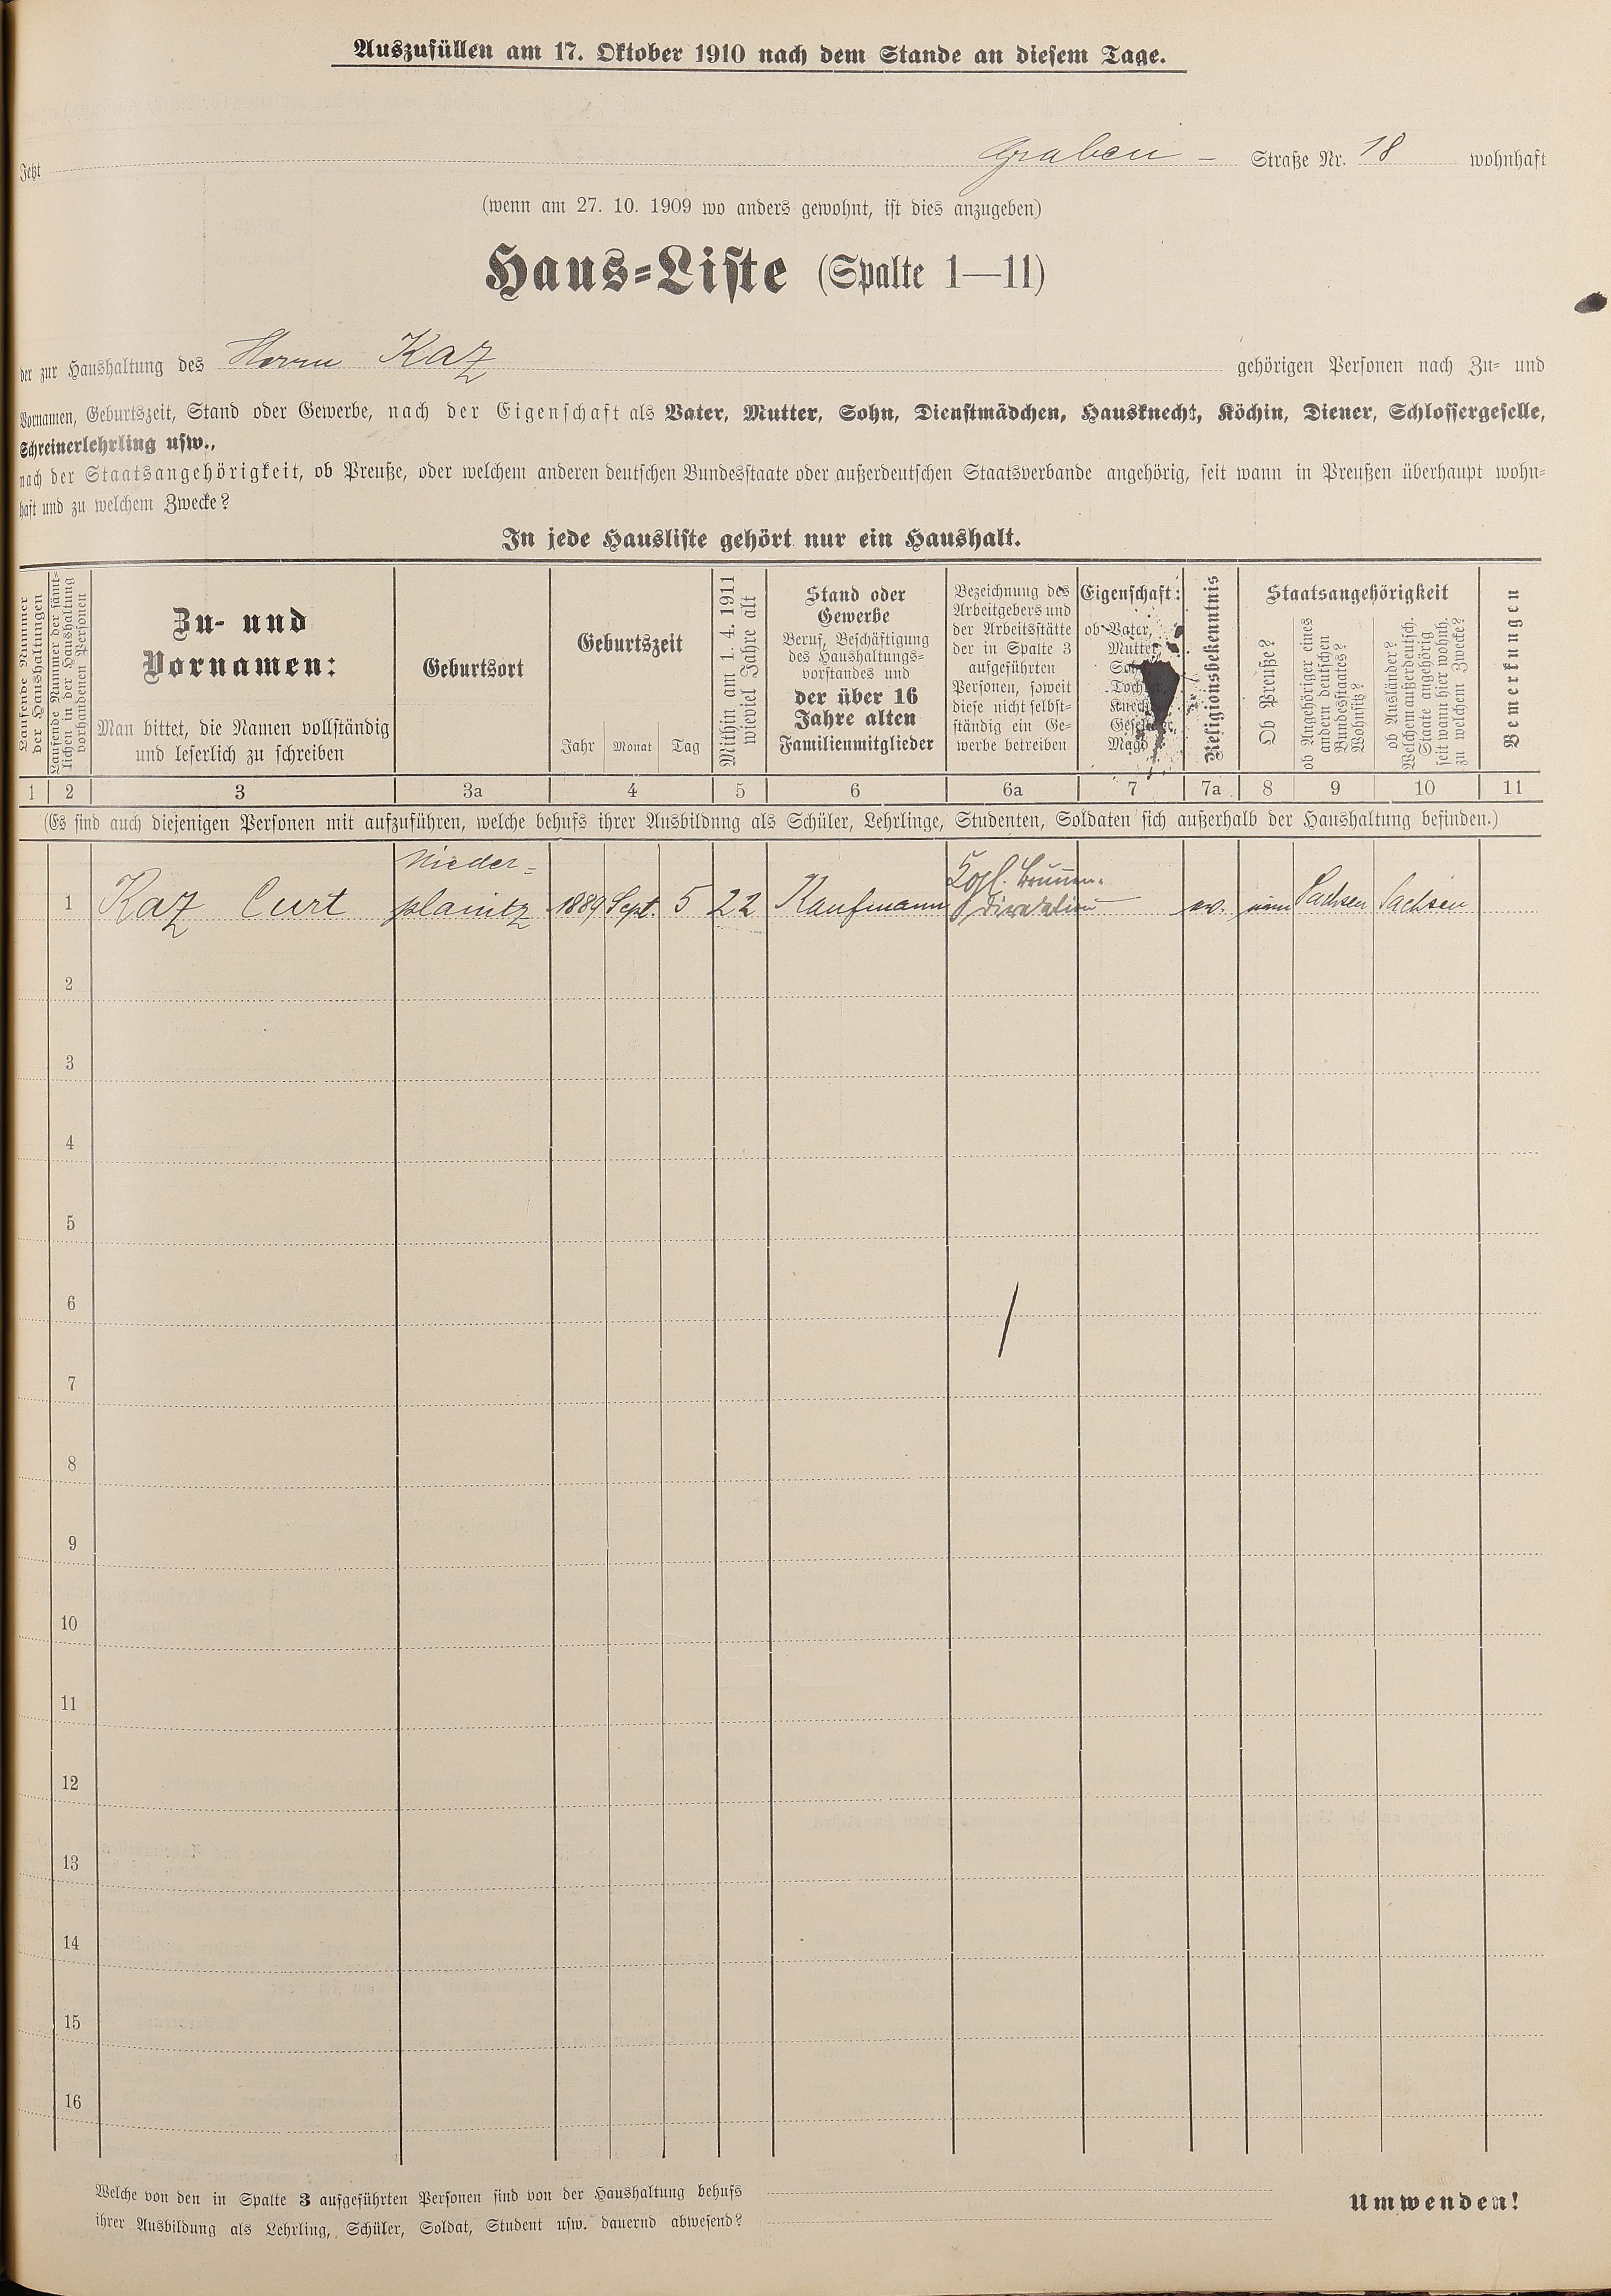 Auszufüllen am 17. Oktober 1910 nach dem Stande an diesem Tage.
Jetzt Graben- Straße Nr. 18 wohnhaft
(wenn am 27. 10. 1909 wo anders gewohnt, ist dies anzugeben)
Haus-Liste (Spalte 1—11)
der zur Haushaltung des Herrn Kaz gehörigen Personen nach Zu- und
Vornamen, Geburtszeit, Stand oder Gewerbe, nach der Eigenschaft als Vater, Mutter, Sohn, Dienstmädchen, Hausknecht, Köchin, Diener, Schlossergeselle,
Schreinerlehrling usw.,
nach der Staatsangehörigkeit, ob Preuße, oder welchem anderen deutschen Bundesstaate oder außerdeutschen Staatsverbande angehörig, seit wann in Preußen überhaupt wohn-
haft und zu welchem Zwecke?
In jede Hausliste gehört nur ein Haushalt.
Laufende Nummer
der Haushaltungen
Laufende Nummer der sämt-
lichen in der Haushaltung
vorhandenen Personen
Zu- und
Vornamen:
Man bittet, die Namen vollständig
und leserlich zu schreiben
Geburtsort
Geburtszeit
Jahr Monat Tag
Mithin am 1. 4. 1911
wieviel Jahre alt
Stand oder
Gewerbe
Beruf, Beschäftigung
des Haushaltungs-
vorstandes und
der über 16
Jahre alten
Familienmitglieder
Bezeichnung des
Arbeitgebers und
der Arbeitsstätte
der in Spalte 3
aufgeführten
Personen, soweit
diese nicht selbst-
ständig ein Ge-
werbe betreiben
Eigenschaft:
ob Vater,
Mutter
Magd
Religionsbekenntnis
Staatsangehörigkeit
Ob Preuße?
ob Angehöriger eines
andern deutschen
Bundesstaates?
Wohnsitz?
ob Ausländer?
Welchem außerdeutsch.
Staate angehörig
seit wann hier wohnh.
zu welchem Zwecke?
Bemerkungen
1 2 3 3a 4 5 6 6a 7 7a 8 9 10 11
(Es sind auch diejenigen Personen mit aufzuführen, welche behufs ihrer Ausbildung als Schüler, Lehrlinge, Studenten, Soldaten sich außerhalb der Haushaltung befinden.)
Nieder- Kgl. Brunnen-
1 Kaz Curt planitz 1889 Sept. 5 22 Kaufmann Direktion ev. nein Sachsen Sachsen
2
3
4
5
6
7
8
9
10
11
12
13
14
15
16
Welche von den in Spalte 3 aufgeführten Personen sind von der Haushaltung behufs
ihrer Ausbildung als Lehrling, Schüler, Soldat, Student usw. dauernd abwesend?
Umwenden!